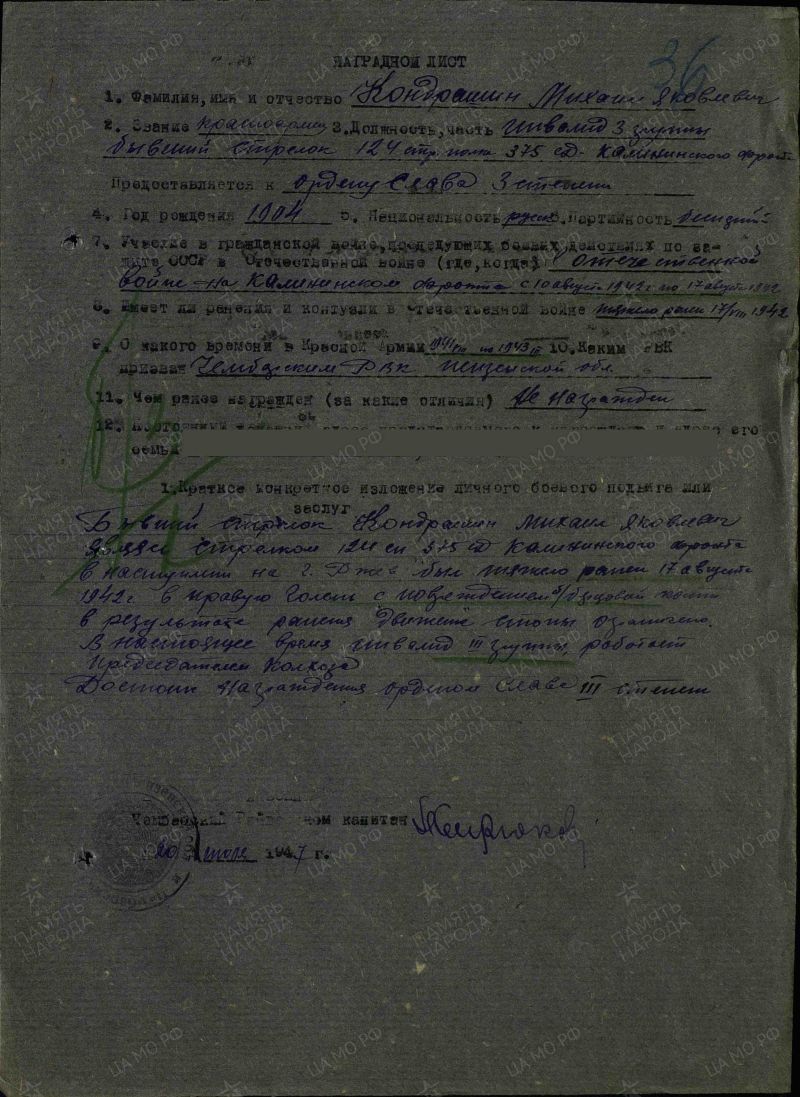 36
НАГРАДНОЙ ЛИСТ
1. Фамилия, имя и отчество Кондрашин Михаил Яковлевич
2. Звание красноармеец 3. Должность, часть инвалид 3 группы
бывший стрелок 124 стр. полка 375 сд - Калининского фронта
Предоставляется к ордену Слава 3 степени
4. Год рождения 1904 5. Национальность русск 6. Партийность
7. Участие в гражданской войне, последующих боевых действиях по за-
щите СССР и Отечественной войне (где, когда) Отечественной
войне - на Калининском фронте с 10 август 1942 г по 17 август 1942
8. Имеет ли ранения и контузии в Отечественной войне тяжело ранен 17/VIII 1942
9. С какого времени в Красной Армии 1941 по 1943 10. Каким РВК
призван Чембарским РВК Пензенской обл.
11. Чем ранее награжден (за какие отличия) Не награжден
12. его
семьи
1. Краткое конкретное изложение личного боевого подвига или
заслуг
Бывший стрелок Кондрашин Михаил Яковлевич
стрелком 124 сп 375 сд Калининского фронта
в наступлении на г. Ржев был тяжело ранен 17 августа
1942 г в правую голень с повреждением б/берцовой кости
в результате ранения движение стопы ограничено.
В настоящее время инвалид III группы, работает
Председателем Колхоза
Достоин награждения орденом Слава III степени
капитан
20 1947 г.
ПАМЯТЬ НАРОДА
ЦА МО РФ